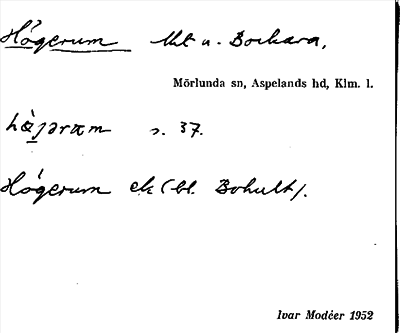 Högerum lht u. Bockara,
Mörlunda sn, Aspelands hd, Klm. l.
s. 37.
Högerum ek (bl. Bohult).
Ivar Modéer 1952